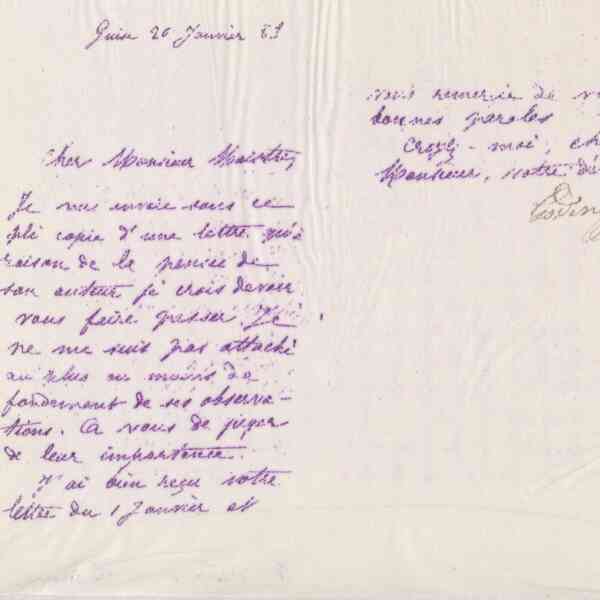 Guise 26 Janvier 83
Cher Monsieur Maistre,
Je vous envoie sous ce
pli copie d'une lettre qu'à
raison de la pensée de
son auteur je crois devoir
vous faire passer. Je
ne me suis pas attaché
au plus ou moins de
fondement de ses observa-
tions. A vous de juger
de leur importance.
J'ai bien reçu votre
lettre du 1 Janvier et
vous remercie de
bonnes paroles
Croyez-moi, ch
Monsieur, votre dé
Godin